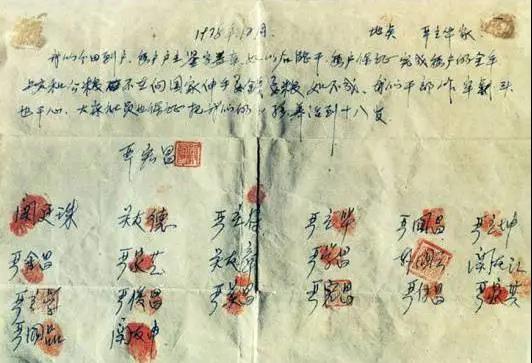 1978年12月 地点 严立华家
我们分田到户，每户户主签字盖章，如以后能干，每户保证完成每户的全年
上交和公粮 不在向国家伸手要钱要粮，如不成，我们干部作牢刹头
也干心，大家社员也保证把我们的小孩养活到十八岁
严宏昌
关廷珠 关友德 严立付 严立华 严国昌 严立坤
严金昌 严家芝 关友章 严学昌 关友江
严立学 严俊昌 严美昌 严宏昌 严付昌 严家其
严国品 关友申